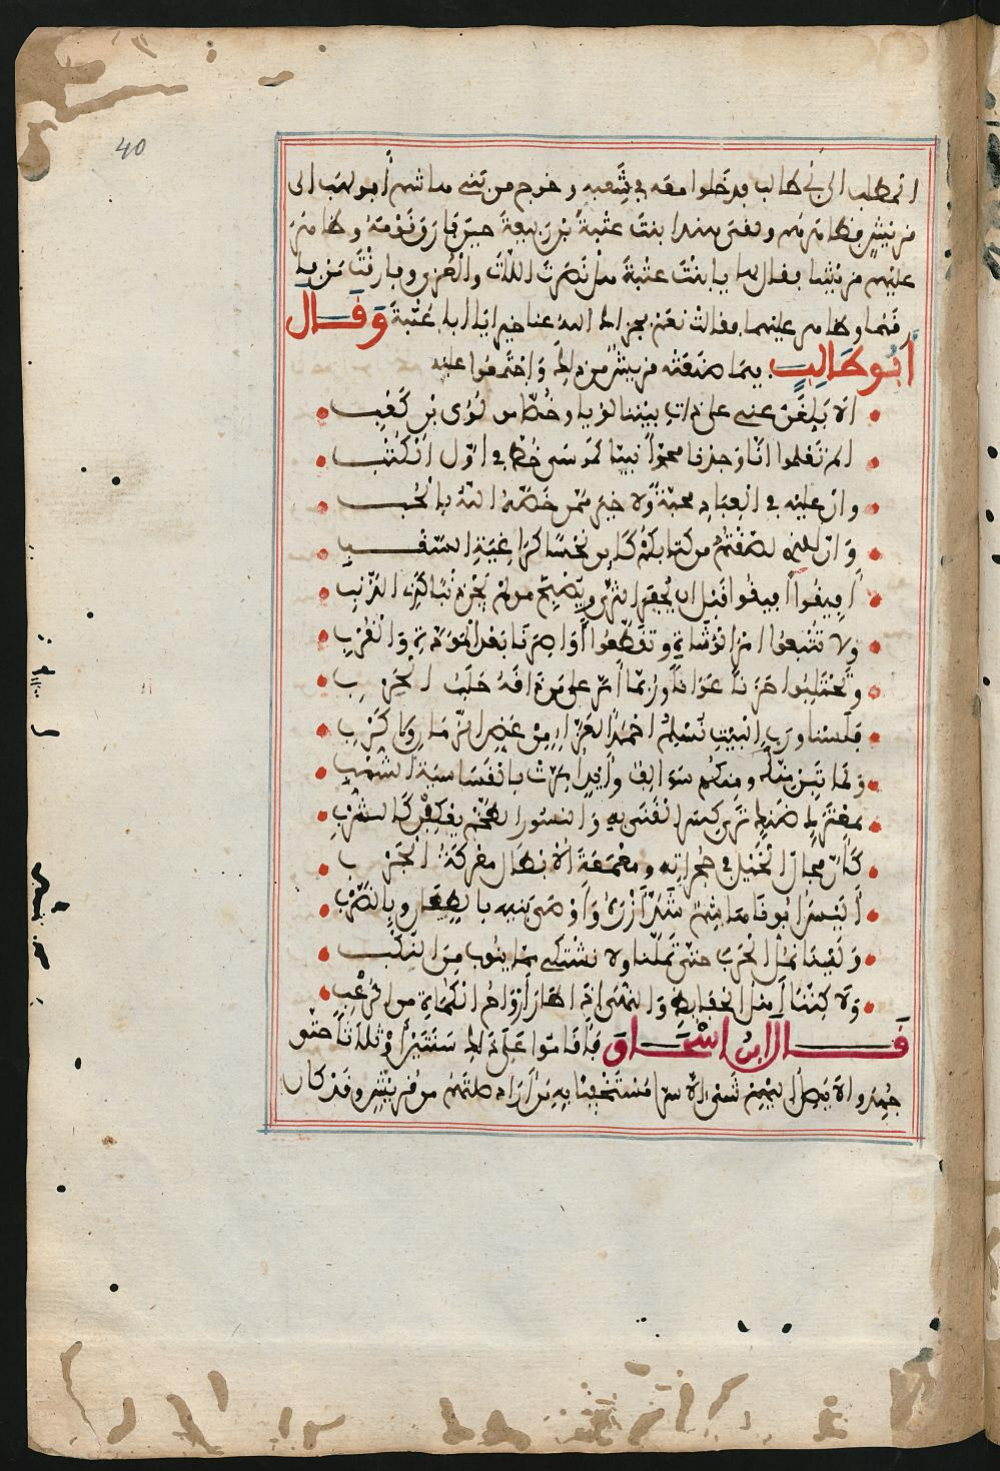 40
المطلب الى أبي طالب فدخلوا معه في شعبه وخرج من بني هاشم أبو لهب الى
قريش فظاهرهم ولقى هندا بنت عتبة بن ربيعة حين فارق قومه وظاهر
عليهم قريشا فقال لها يا بنت عتبة هل نصرت اللات والعزى وفارقت من فا
رقهما وظاهر عليهما فقالت نعم فجزاك الله عنا خيرا يا أبا عتبة وقال
أبو طالب فيما صنعته قريش من ذلك واجتمعوا عليه
الا بلغن عني على ذات بيننا لؤيا وخصا من لؤي بن كعب
الم تعلموا انا وجدنا محمدا نبيا كموسى خط في اول الكتب
وان عليه في العباد محبة ولا خير ممن خصه الله بالحب
وان الذي لصقتم من كتابكم لكم كاين نحسا كراغية السقب
أفيقوا أفيقوا قبل ان يحفر الثرى ويصبح من لم يجن ذنبا كذي الذنب
ولا تتبعوا امر الوشاة وتقطعوا أواصرنا بعد المودة والقرب
وتحتلبوا حربا عوانا وربما أمر على من ذاقه حلب الحرب
فلسنا ورب البيت نسلم احمدا لعزاء من عض الزمان ولا كرب
ولما تبن منا ومنكم سوالف وأيد اترت بالقساسية الشهب
بمعترك ضنك ترى كسر القنى به والنسور الطخم يعكفن كالشرب
كأن مجال الخيل في حجراته ومعمعة الابطال معركة الحرب
أليس ابونا هاشم شد أزره وأوصى بنيه بالطعان وبالضرب
ولسنا نمل الحرب حتى تملنا ولا نشتكي ما ينوب من النكب
ولاكننا أهل الحفايظ والنهى اذا طار أرواح الكماة من الرعب
قال ابن اسحاق فأقاموا على ذلك سنتين أو ثلاثا حتى
جهدوا الا يصل اليهم شيء الا سرا مستخفيا به من أراد صلتهم من قريش وقد كان